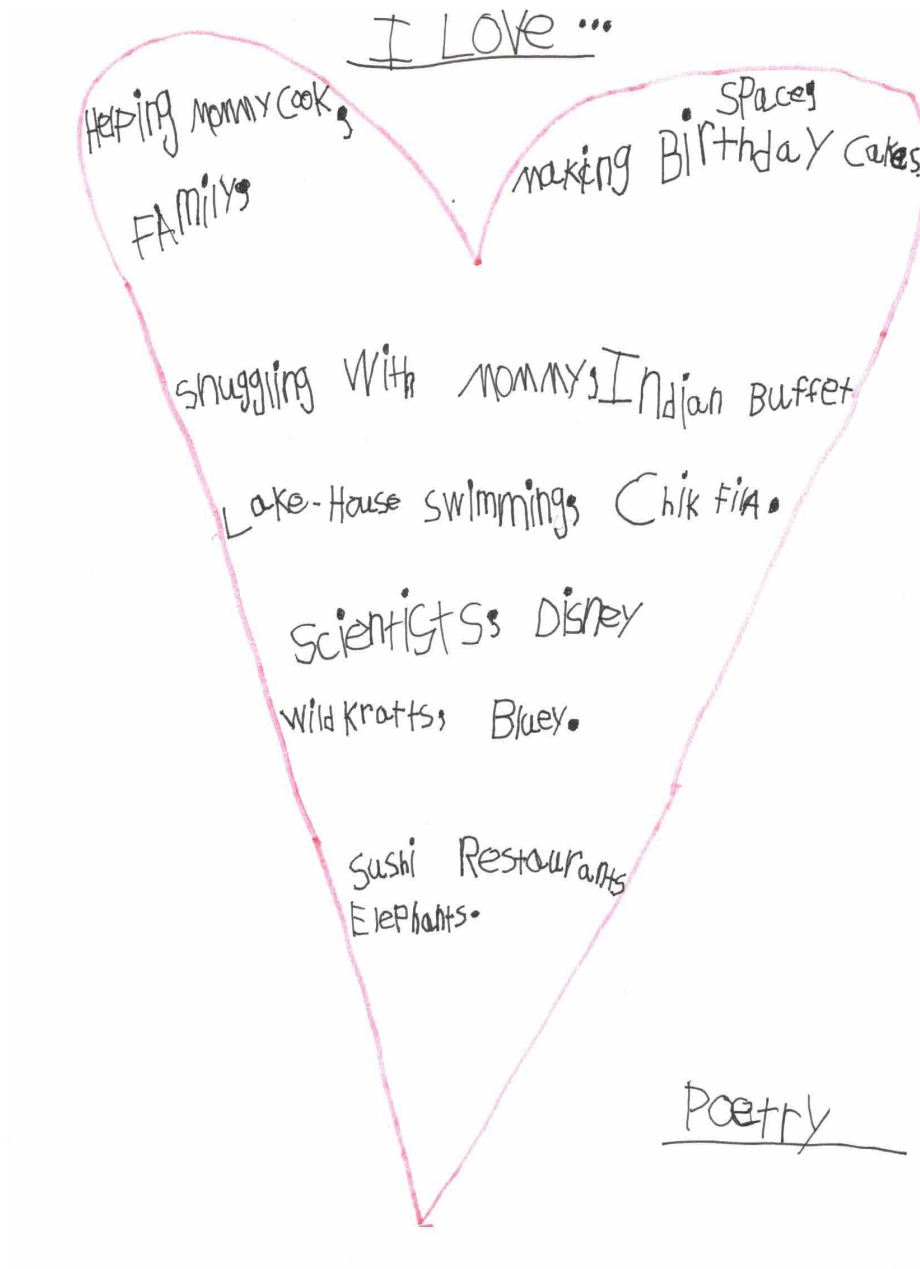 I Love ...
Helping mommy cook,
Family,
Space,
making Birthday Cakes,
snuggling with mommy, Indian Buffet
Lake-House swimming, Chik FilA.
Scientists, Disney
Wild Kratts, Bluey.
Sushi Restaurants
Elephants.
Poetry